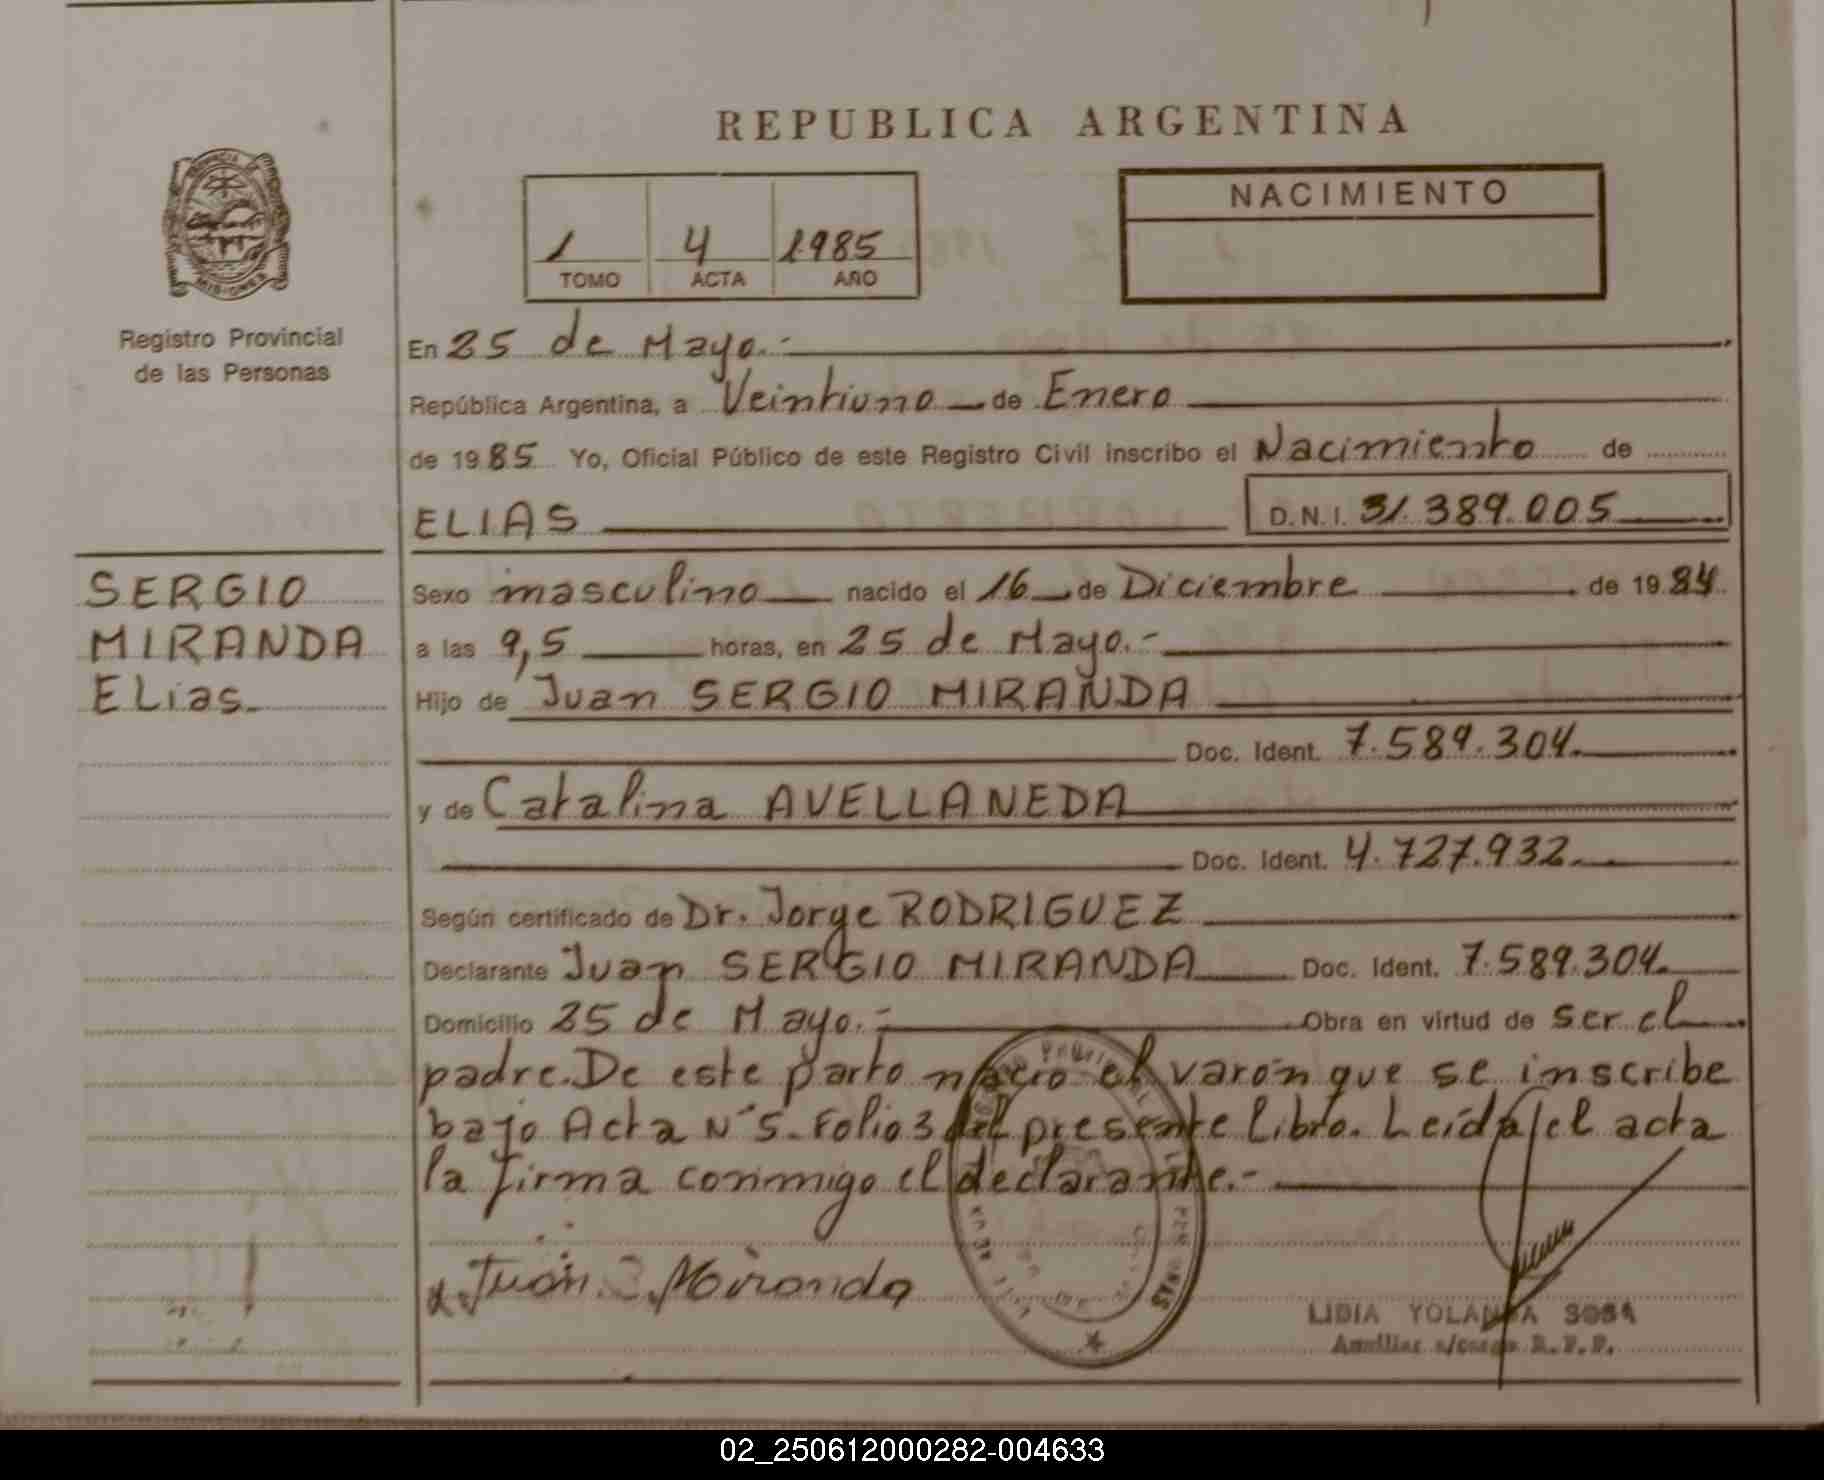 REPUBLICA ARGENTINA
PROVINCIA
MISIONES
Registro Provincial
de las Personas
1 4 1985
TOMO ACTA AÑO
NACIMIENTO
En 25 de Mayo.-
República Argentina, a Veintiuno de Enero
de 19 85 Yo, Oficial Público de este Registro Civil inscribo el Nacimiento de
ELIAS D.N.I. 31.389.005
SERGIO
MIRANDA
ELias.
Sexo masculino nacido el 16 de Diciembre de 19 84
a las 9,5 horas, en 25 de Mayo.-
Hijo de Juan SERGIO MIRANDA
Doc. Ident. 7.589.304.
y de Catalina AVELLANEDA
Doc. Ident. 4.727.932.
Según certificado de Dr. Jorge RODRIGUEZ
Declarante Juan SERGIO MIRANDA Doc. Ident. 7.589.304.
Domicilio 25 de Mayo.- Obra en virtud de ser el
padre. De este parto nacio el varón que se inscribe
bajo Acta N° 5. Folio 3 del presente libro. Leida el acta
la firma conmigo el declarante.-
Juan S. Miranda
LIDIA YOLANDA SOSA
Auxiliar a/cargo R.P.P.
02_250612000282-004633